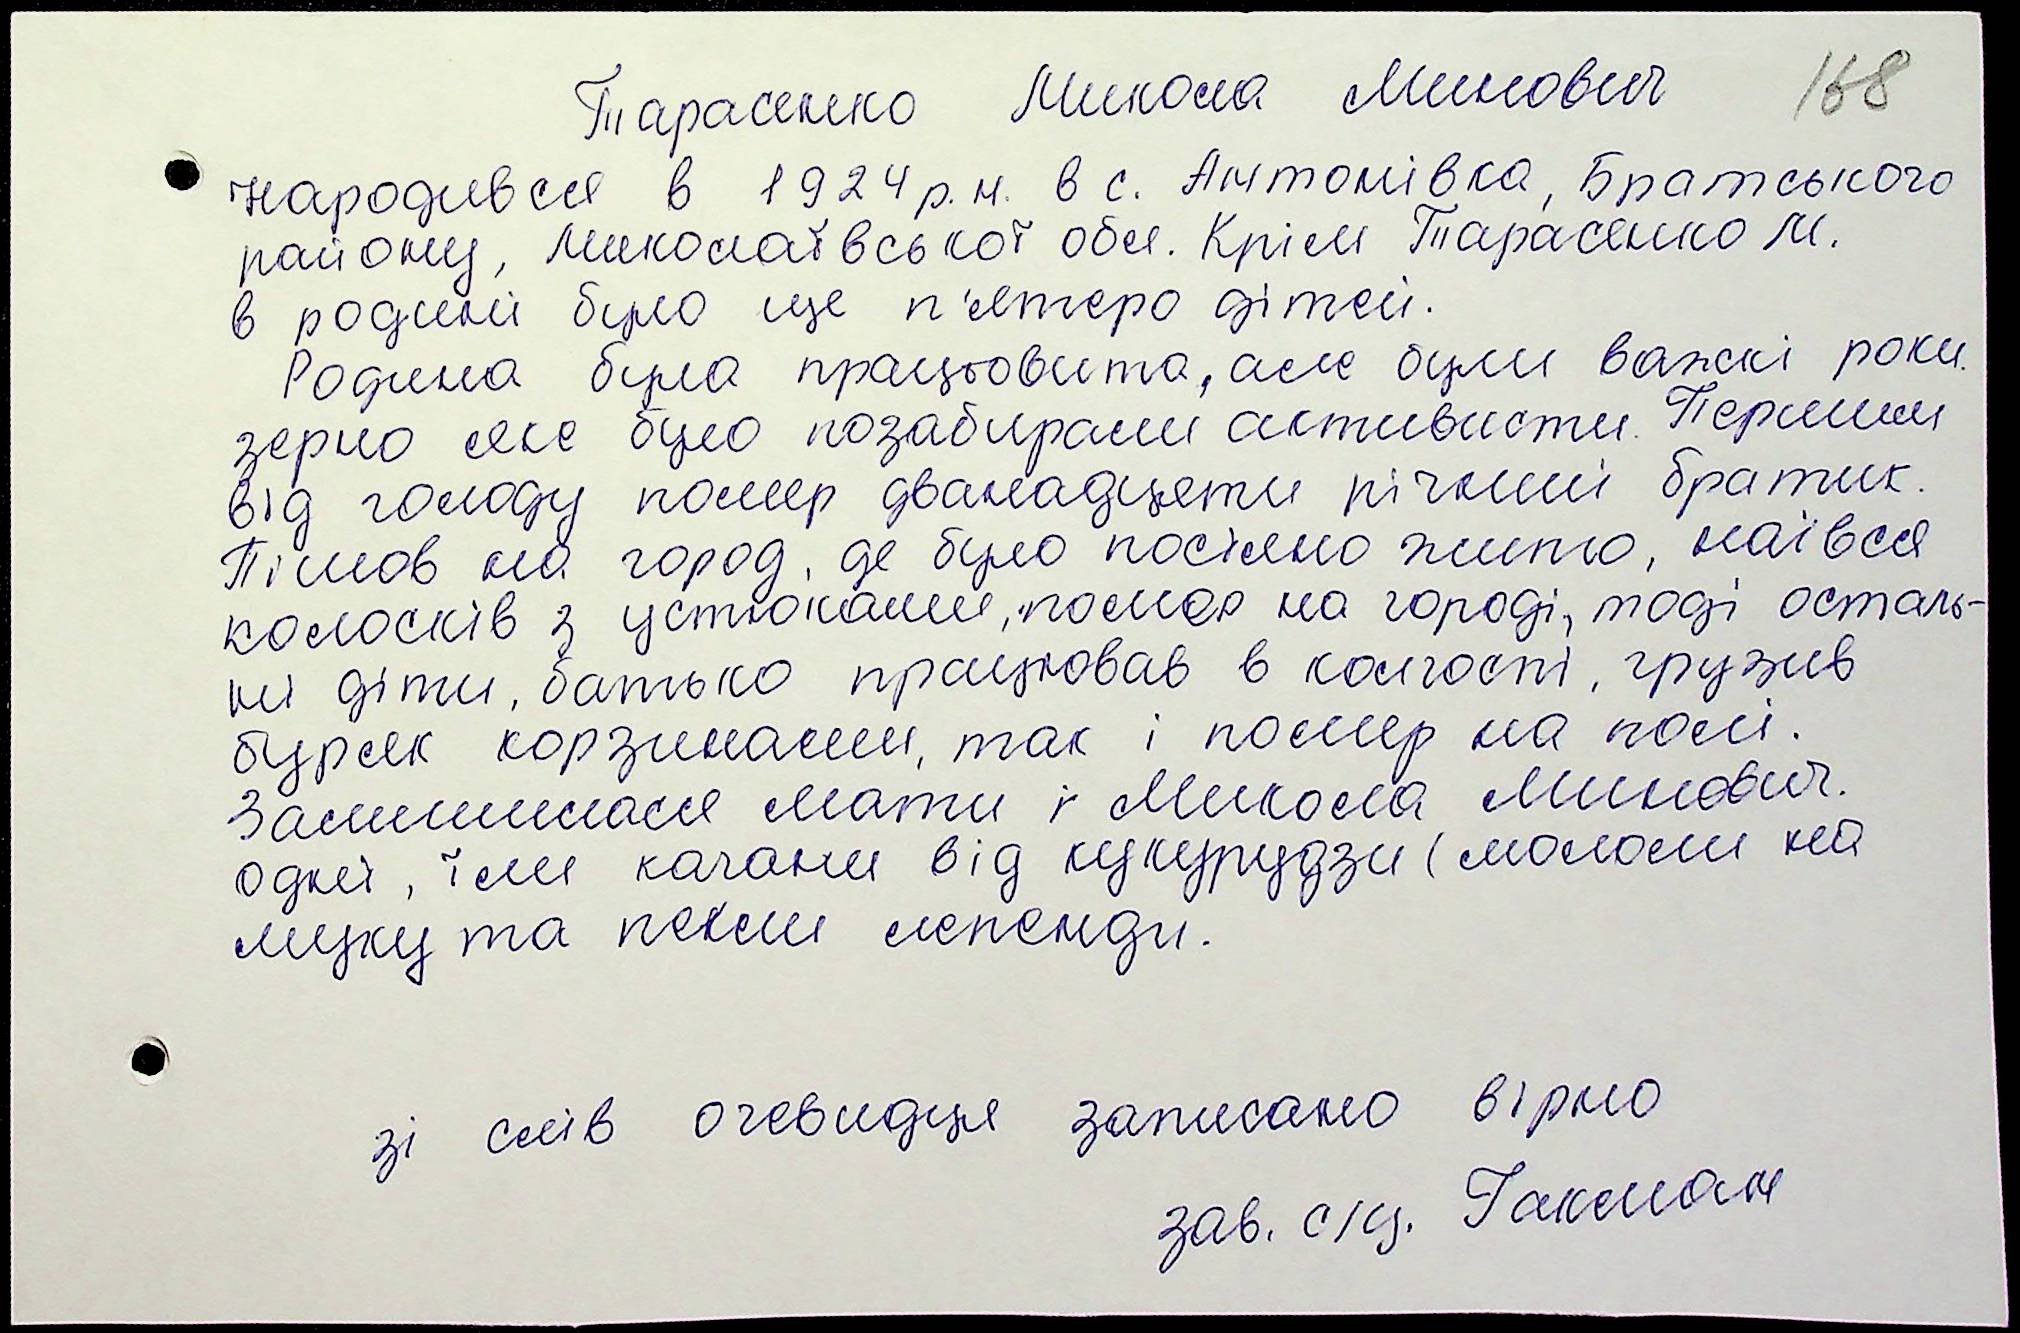 Тарасенко Микола Минович 168
народився в 1924 р.н. в с. Антонівка, Братського
району, Миколаївської обл. Крім Тарасенко М.
в родині було ще п'ятеро дітей.
Родина була працьовита, але були важкі роки.
зерно яке було позабирали активисти. Першим
від голоду помер дванадцяти річний братик.
Пішов на город, де було посіяно жито, наївся
колосків з устюками, помер на городі, тоді осталь-
ні діти, батько працював в колгоспі, грузив
буряк корзинами, так і помер на полі.
Залишилася мати і Микола Минович.
одні, їли качани від кукурудзи (мололи на
муку та пекли лепенди.
зі слів очевидця записано вірно
зав. с/к